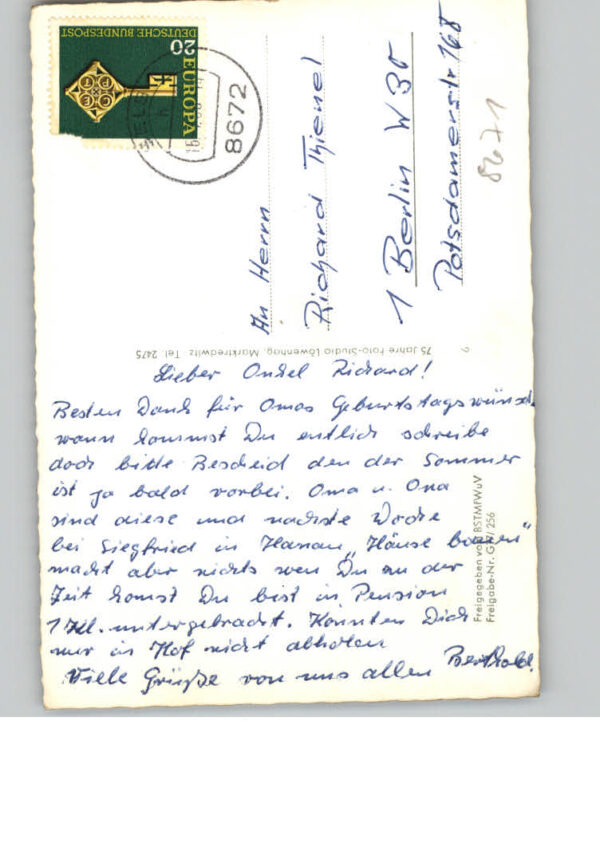 DEUTSCHE BUNDESPOST
20
EUROPA
CEPT
8672
An Herrn
Richard Thienel
1 Berlin W 30
Potsdamerstr 168
8671
75 Jahre Foto-Studio Löwenhag, Marktredwitz Tel. 2475
Lieber Onkel Richard!
Besten Dank für Omas Geburtstagswünsch.
wann kommst Du entlich schreibe
doch bitte Bescheid den der Sommer
ist ja bald vorbei. Oma u. Opa
sind diese und nachste Woche
bei Siegfried in Hanau "Häuse bauen"
macht aber nichts wen Du zu der
Zeit komst Du bist in Pension
1 Kl. untergebracht. Könnten Dich
nur in Hof nicht abholen
Viele Grüße von uns allen Berthold.
Freigegeben von BSTMFWuV
Freigabe-Nr. 256